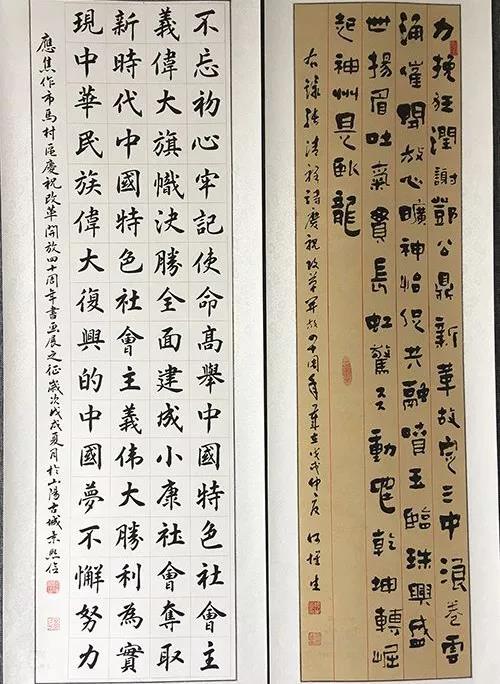 力挽狂瀾謝鄧公鼎新革故定三中浪卷雲
涌催開放心曠神怡促共融噴玉臨珠興盛
世揚眉吐氣貫長虹驚天動地乾坤轉崛
起神州見臥龍
右錄張清祥詩慶祝改革開放四十周年歲在戊戌仲夏
不忘初心牢記使命高舉中國特色社會主
義偉大旗幟決勝全面建成小康社會奪取
新時代中國特色社會主義伟大勝利為實
現中華民族偉大復興的中國夢不懈努力
應焦作市馬村區慶祝改革開放四十周年書畫展之征歲次戊戌夏月於山陽古城